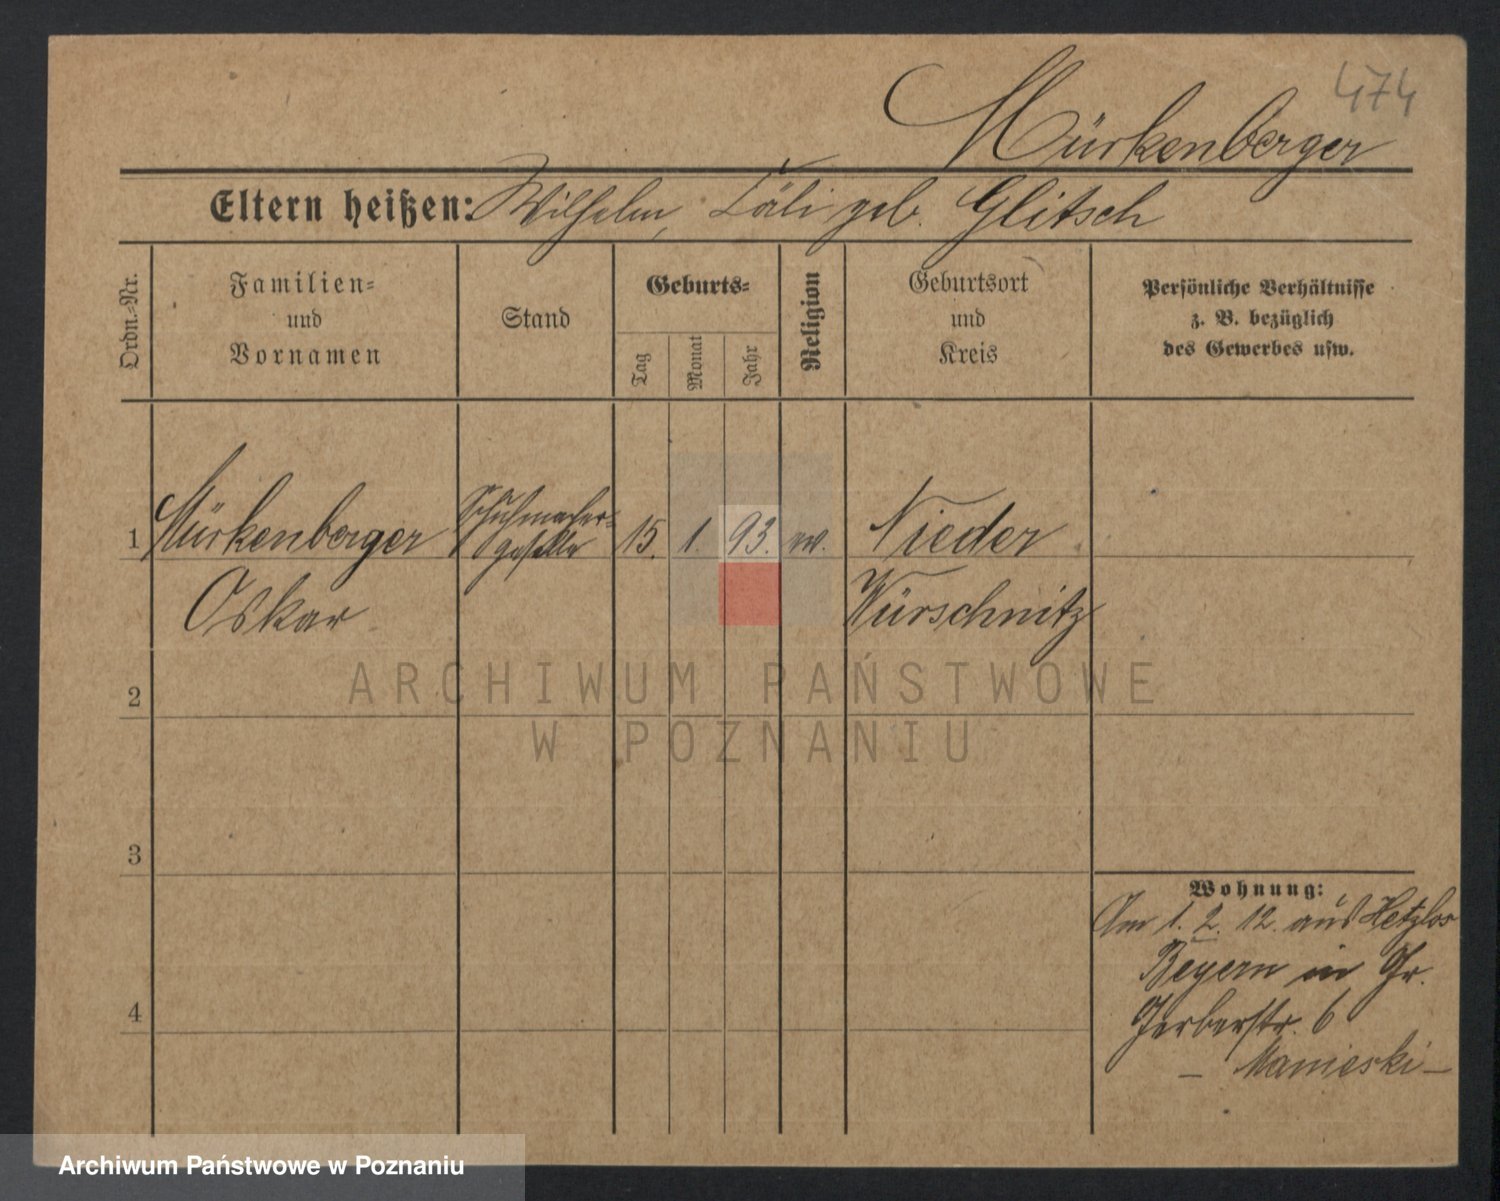 474
Mürkenberger
Eltern heißen: Wilhelm, Läli geb. Glitsch
Ordn.-Nr.
Familien-
und
Vornamen
Stand
Geburts-
Tag
Monat
Jahr
Religion
Geburtsort
und
Kreis
Persönliche Verhältnisse
z. B. bezüglich
des Gewerbes usw.
1 Mürkenberger Schuhmacher- 15. 1. 93. ev. Nieder
geselle
Oskar Würschnitz
2
3
4
Wohnung:
Am 1. 2. 12. aus Hetzlos
Beyern in Gr.
Gerberstr. 6
— Manieski —
ARCHIWUM PAŃSTWOWE
W POZNANIU
Archiwum Państwowe w Poznaniu